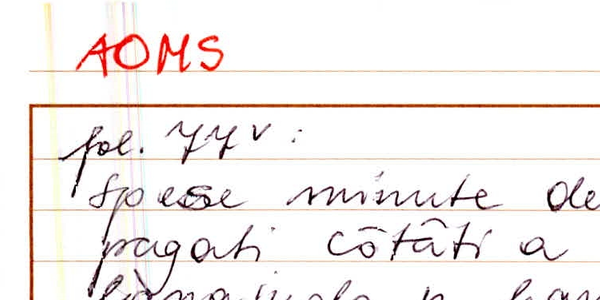 AOMS
fol. 77v :
Spese minute de
pagati cõtãti a